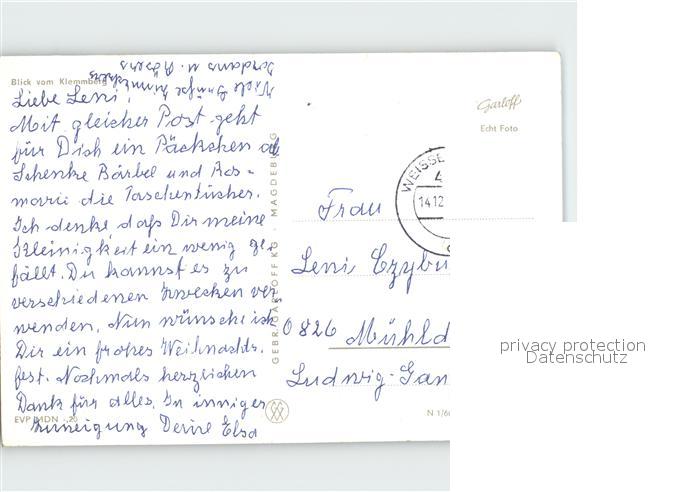 Blick vom Klemmberg
Liebe Leni!
Mit gleicher Post geht
für Dich ein Päckchen ab
Schenke Bärbel und Ros-
marie die Taschentücher.
Ich denke daß Dir meine
Kleinigkeit ein wenig ge-
fällt. Du kannst es zu
verschiedenen Zwecken ver
wenden. Nun wünsche ich
Dir ein frohes Weihnachts-
fest. Nochmals herzlichen
Dank für alles. In inniger
Zuneigung Deine Elsa
EVP MDN -,20
Viele Grüße
Jordans u.
GEBR. GARLOFF KG · MAGDEBURG
Garloff
Echt Foto
WEISSE
14.12
Frau
Leni Czybu
0826 Mühld
Ludwig-Gan
N 1/6
privacy protection
Datenschutz